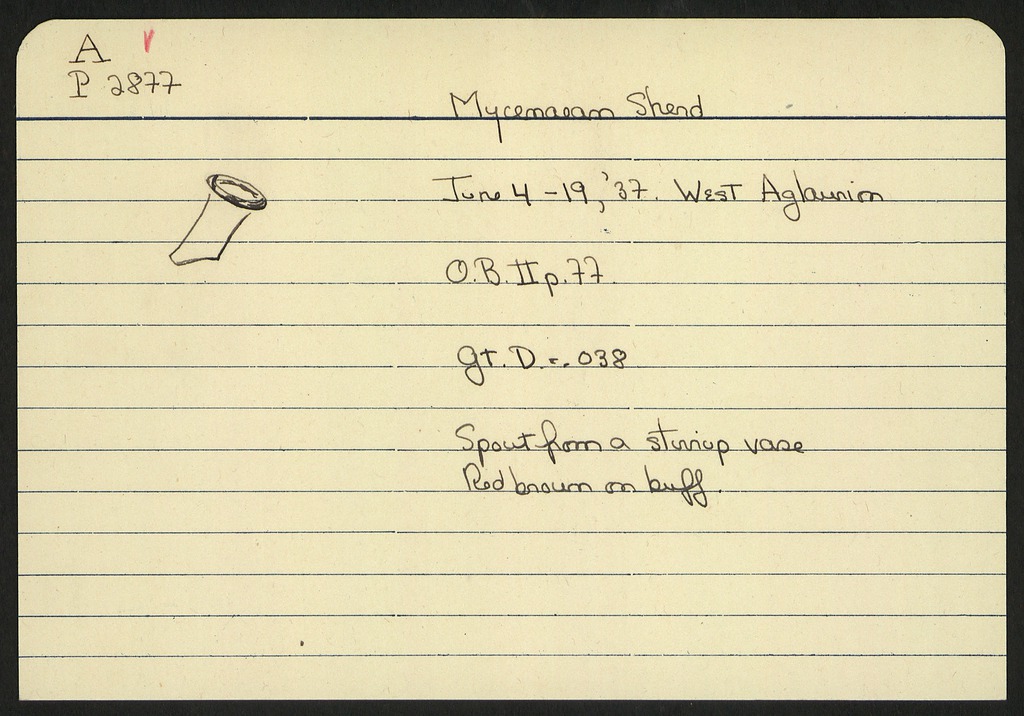 A
P 2877
Mycenaean Sherd
June 4-19, '37. West Aglaurion
O.B. II p. 77.
gt. D. = .038
Spout from a stirrup vase
Red brown on buff.